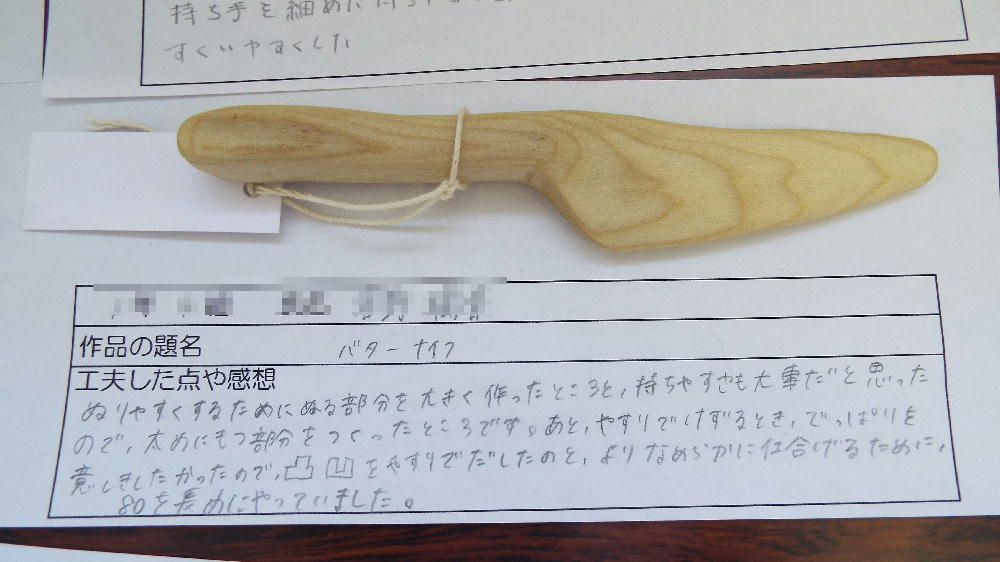 持ち手を細めに持ちやす
すくいやすくした
作品の題名 バターナイフ
工夫した点や感想
ぬりやすくするためにぬる部分を大きく作ったところと,持ちやすさも大事だと思った
ので,太めにもつ部分をつくったところです。あと,やすりでけずるとき,でっぱりを
意しきしたかったので,凸凹をやすりでだしたのと,よりなめらかに仕合げるために,
80を長めにやっていました。